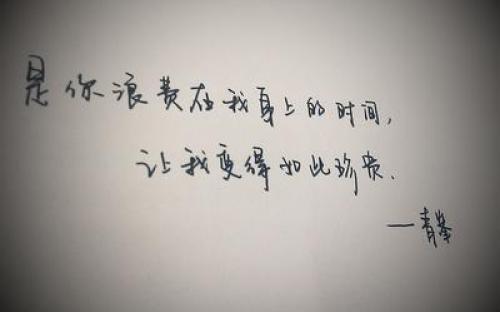 是你浪费在我身上的时间，
让我变得如此珍贵.
—青峯